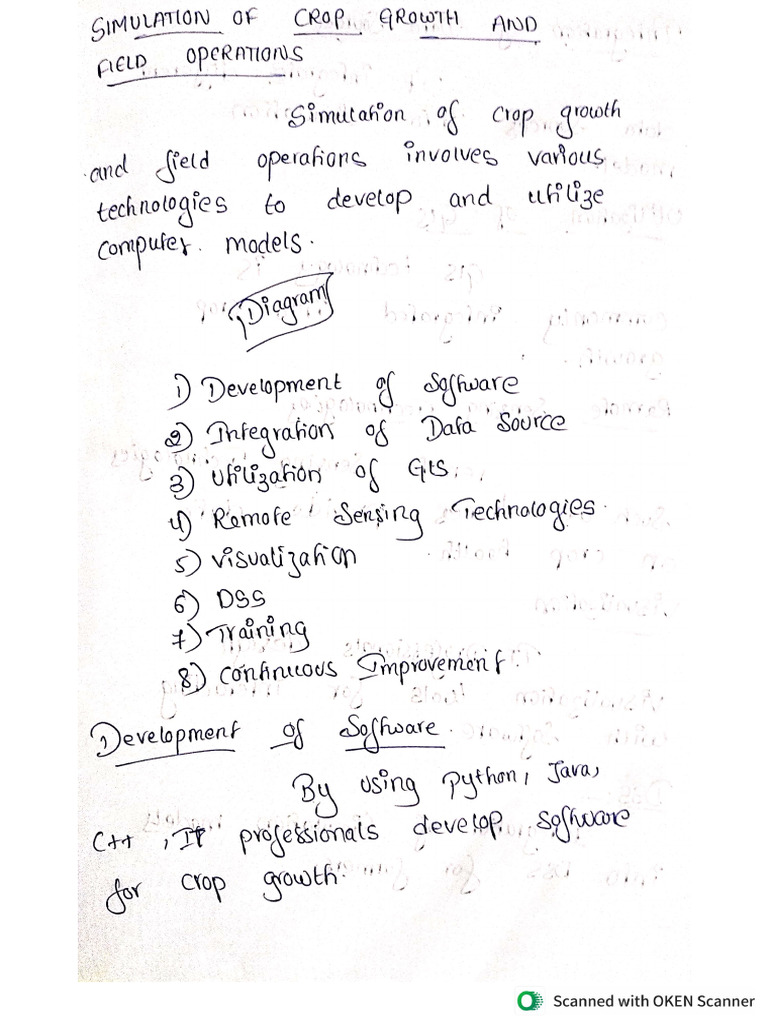 SIMULATION OF CROP GROWTH AND
FIELD OPERATIONS
Simulation of crop growth
and field operations involves various
technologies to develop and utilize
computer models.
Diagram
1) Development of Software
2) Integration of Data Source
3) Utilization of GIS.
4) Remote Sensing Technologies.
5) Visualization
6) DSS
7) Training
8) Continuous Improvement
Development of Software.
By using python, Java,
C++, IT professionals develop software
for crop growth.
Scanned with OKEN Scanner